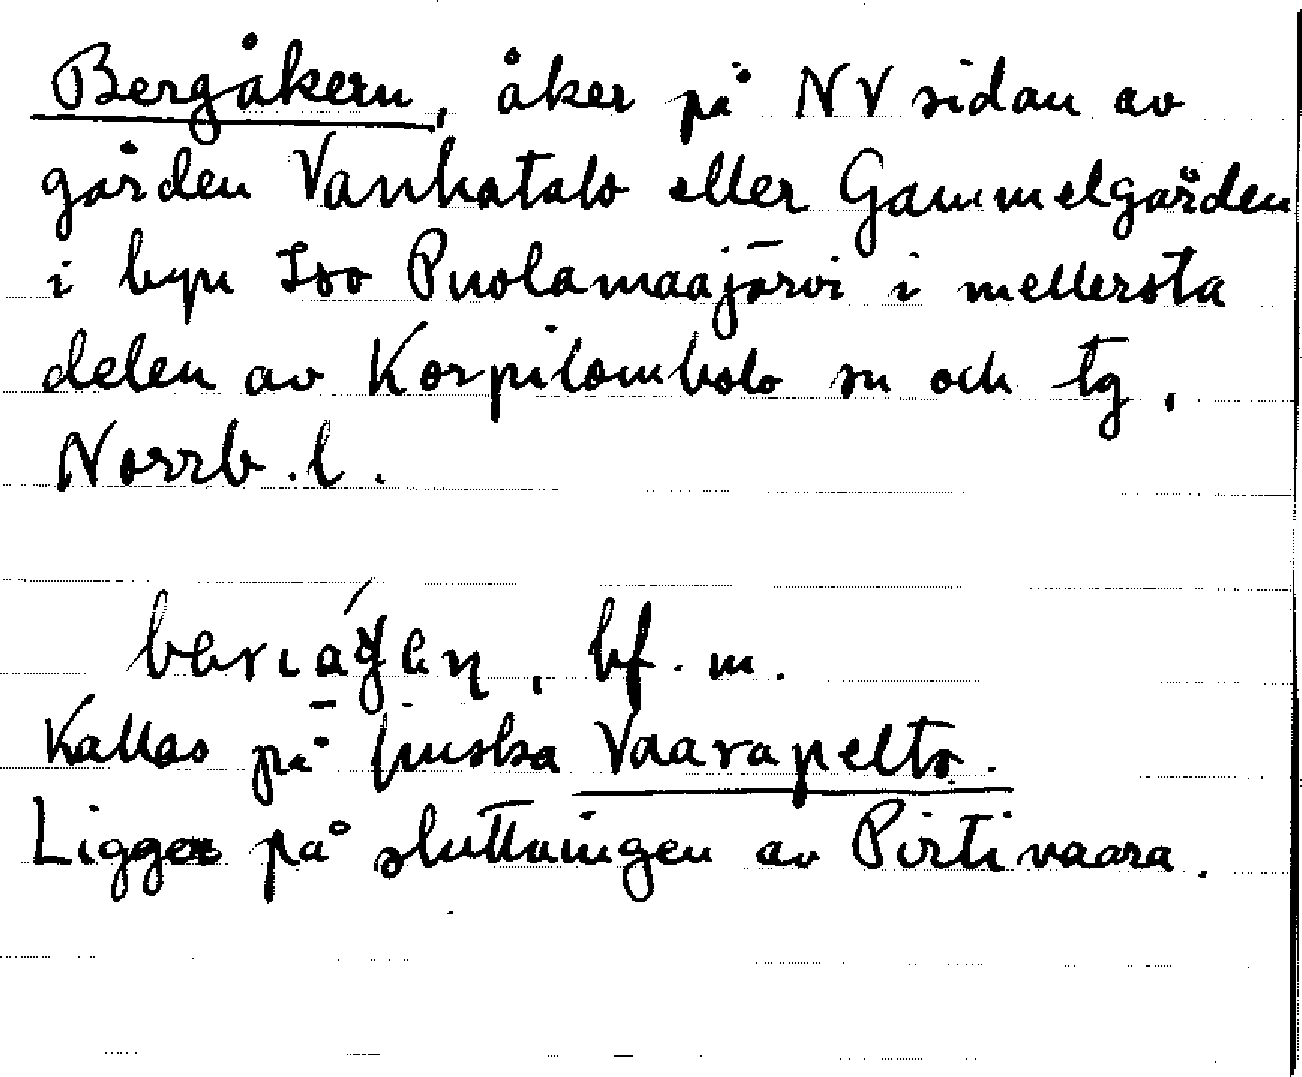 Bergåkern, åker på NV sidan av
gården Vanhatalo eller Gammelgården
i byn Iso Puolamaajärvi i mellersta
delen av Korpilombolo sn och tg,
Norrb.l.
bf. m.
Kallas på finska Vaarapelto.
Ligger på sluttningen av Pirtivaara.